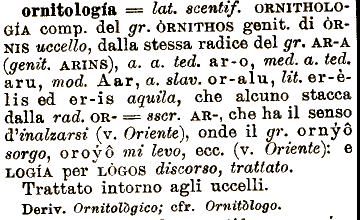 ornitología = lat. scentif. ORNITHOLO-
GÍA comp. del gr. ÒRNITHOS genit. di ÒR-
NIS uccello, dalla stessa radice del gr. AR-A
(genit. ARINS), a. a. ted. ar-o, med. a. ted.
aru, mod. Aar, a. slav. or-alu, lit. er-è-
lis ed er-is aquila, che alcuno stacca
dalla rad. OR- = sscr. AR-, che ha il senso
d'inalzarsi (v. Oriente), onde il gr. ornýô
sorgo, oroýô mi levo, ecc. (v. Oriente): e
LOGÍA per LÒGOS discorso, trattato.
Trattato intorno agli uccelli.
Deriv. Ornitològico; cfr. Ornitòlogo.